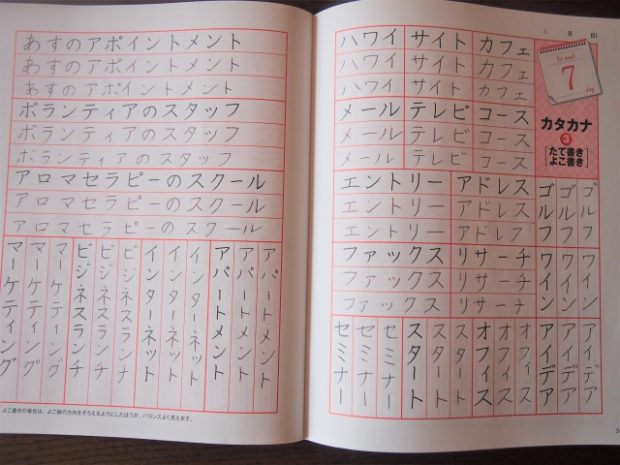 ( 月 日)
1st week
7
day
カタカナ
3
[たて書き
よこ書き]
ハワイ サイト カフェ
ハワイ サイト カフェ
ハワイ サイト カフェ
メール テレビ コース
メール テレビ コース
メール テレビ コース
エントリー アドレス
エントリー アドレス
エントリー アドレス
ファックス リサーチ
ファックス リサーチ
ファックス リサーチ
ゴルフ
ゴルフ
ゴルフ
ワイン
ワイン
ワイン
アイデア
アイデア
アイデア
オフィス
オフィス
オフィス
スタート
スタート
スタート
セミナー
セミナー
セミナー
あすのアポイントメント
あすのアポイントメント
あすのアポイントメント
ボランティアのスタッフ
ボランティアのスタッフ
ボランティアのスタッフ
アロマセラピーのスクール
アロマセラピーのスクール
アロマセラピーのスクール
アパートメント
アパートメント
アパートメント
インターネット
インターネット
インターネット
ビジネスランチ
ビジネスランチ
ビジネスランチ
マーケティング
マーケティング
マーケティング
よこ書きの場合は、よこ線の方向をそろえるようにしたほうが、バランスよく見えます。